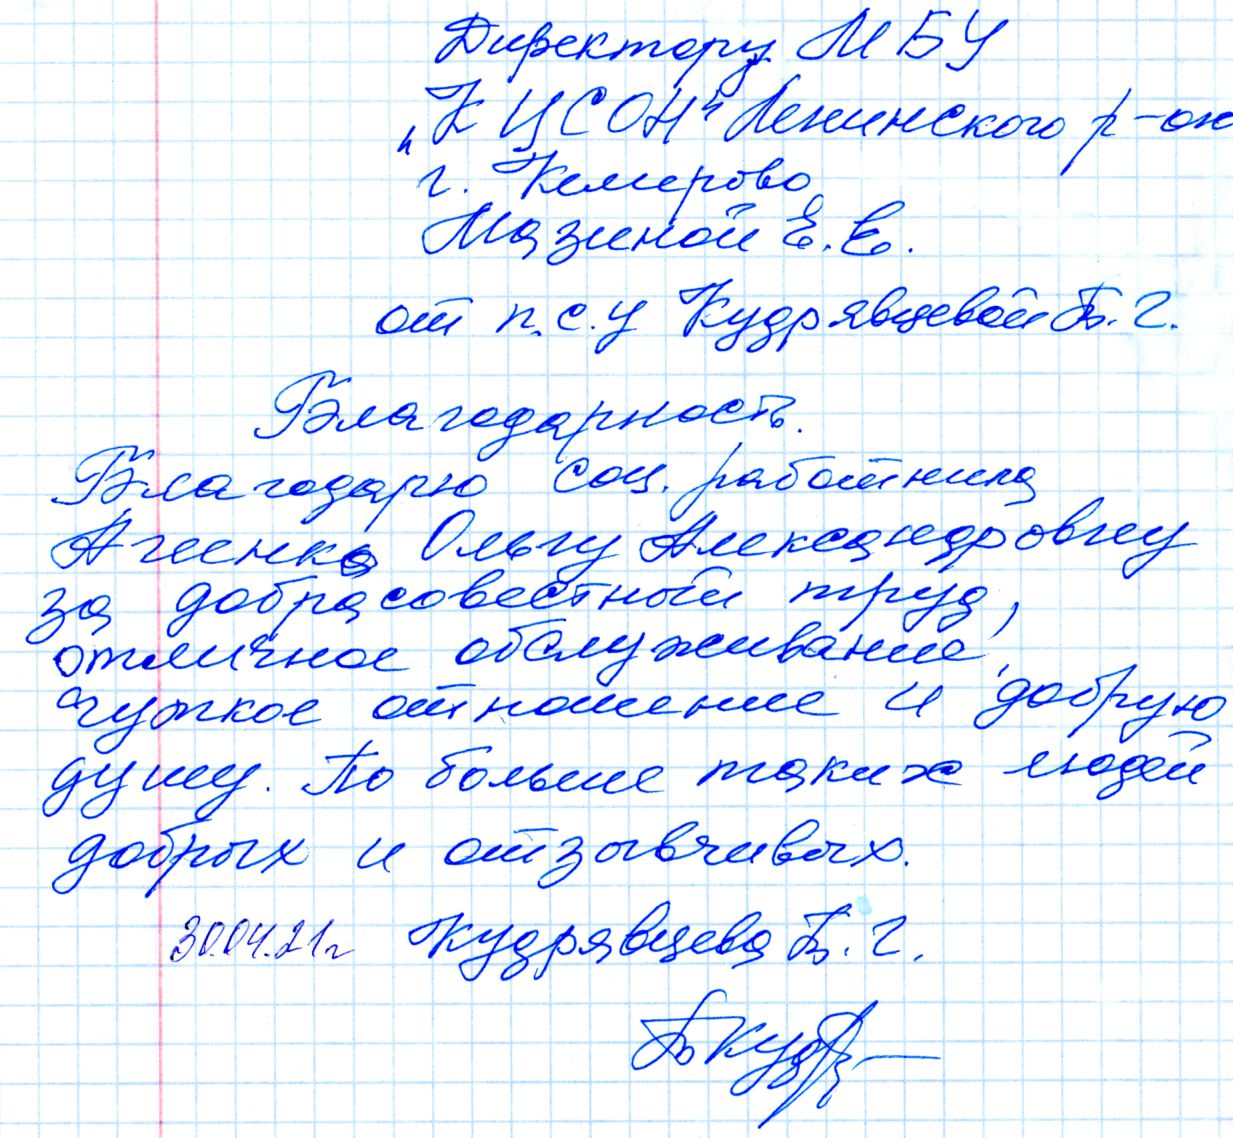 Директору МБУ
"КЦСОН" Ленинского р-он
г. Кемерово
Мазиной Е.Е.
от п.с.у Кудрявцевой Б.Г.
Благодарность.
Благодарю соц. работника
Ольгу Александровну
за добрасовестный труд,
отличное обслуживание,
чуткое отношение и добрую
душу. По больше таких людей
добрых и отзывчивых.
30.04.21г Кудрявцева Б.Г.